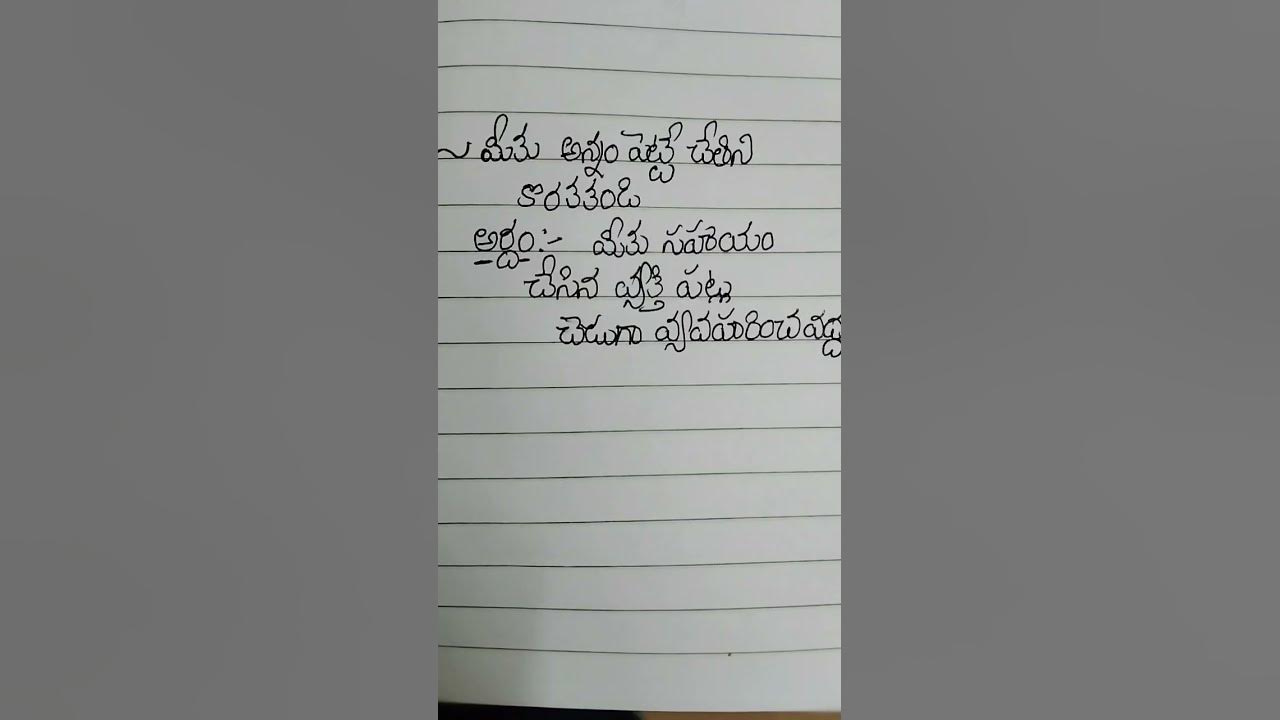 ~ మీకు అన్నం పెట్టే చేతిని
కొరకకండి
అర్ధం:- మీకు సహాయం
చేసిన వ్యక్తి పట్ల
చెడుగా వ్యవహరించవద్దు